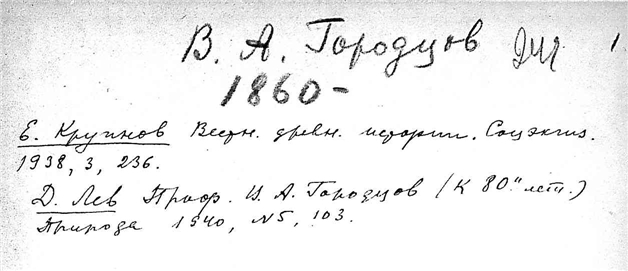 В. А. Городцов 1
1860 –
Е. Крупнов Вестн. древн. истории. Соцэкгиз.
1938, 3, 236.
Д. Лев Проф. В. А. Городцов (К 80"лет.)
Природа 1940, N5, 103.